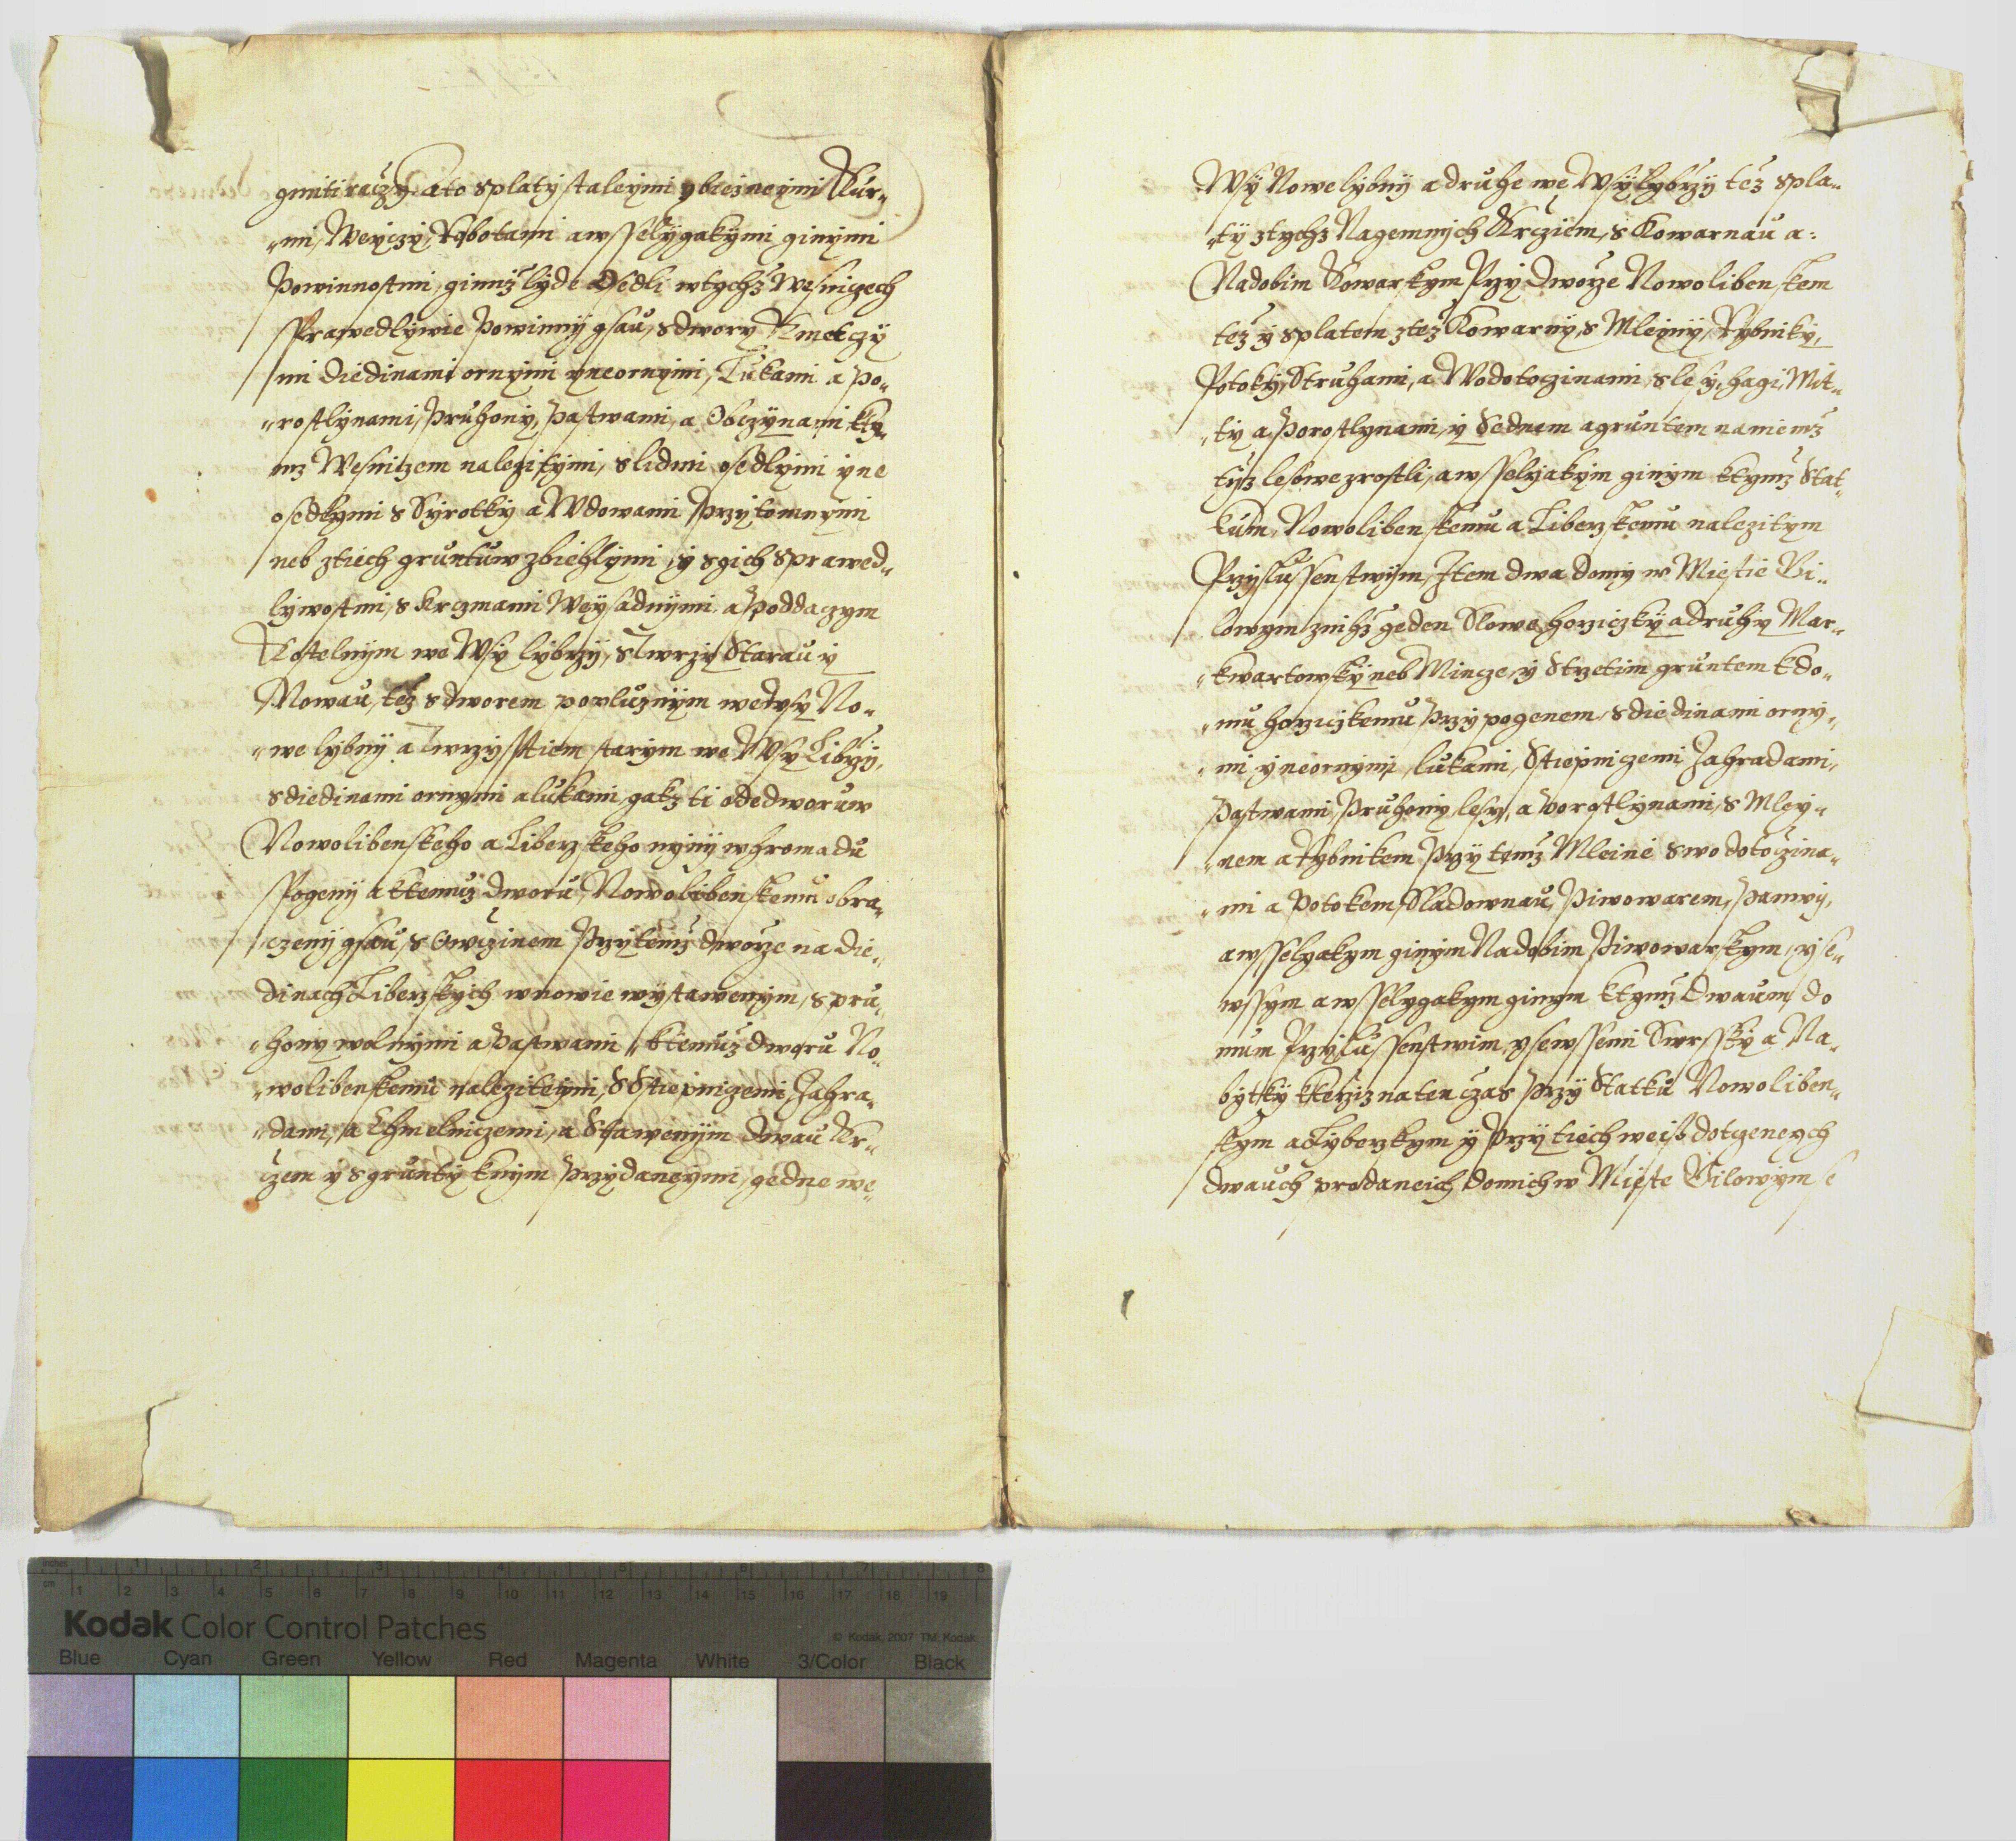 gmiti raczy. ato s platy staleymi y biezneymi Kur-
-mi, Weyczy, Robotami a wsselygakymi ginymi
Powinnostmi, gimiz lyde Osedli w tychz Wesniczech
Sprawedlywie Powinny gsau, s dwory Kmetczy
mi diedinami ornymi y neornymi, Lukami a po-
-rostlynami, Pruhony, Pastwami, a Obczynami kty-
mz Wesniczem nalezitymi, s lidmi osedlymi y ne
osedlymi s Syrotky a Wdowami Przytomnymi
neb z tiech gruntuw zbiehlymi y s gich sprawed-
lywostmi, s Krczmami Weysadnymi a Poddaczym
Kostelnym we Wsy lybrzy, s Twrzy Starau y
Nowau, tez s dworem popluznym we wsy No-
-we lybny a Twrzysstiem starym we Wsy Librzy,
s diedinami ornymi a lukami gakz ti ode dworuw
Nowolibenskeho a Liberzskeho nyny w hromadu
Spogeny a k temuz dworu Nowolibenskemu obra-
czeny gsau, s Owczinem Przy temz dworze na die-
dinach Liberzskych w nowie wystawenym, s pru-
-hony wolnymi a Pastwami k temuz dworu No-
-wolibenskemu naleziteymi, s Sstiepniczemi Zahra-
-dami, a Chmelniczemi, a Stawenym dwau Kr-
czem y s grunty k nym Przydaneymi, gedne we
Wsy Nowe lybny a druhe we Wsy lybrzy tez s pla-
-ty z tychz Nagemnych Krcziem, s Kowarnau a
Nadobim Kowarskym Przy Dworze Nowolibenskem
tez y s platem z tez Kowarny, s Mleyny, Rybniky,
Potoky, Struhami, a Wodotoczinami, s lesy, hagi, Mit-
-ty a Porostlynami, y S ednem a gruntem na niemz
tyz lesowe zrostli, a wsselyakym ginym k tymz Stat-
kum, Nowolibenskemu a Liberzskemu nalezitym
Przyslussenstwym, Item dwa domy w Miestie Bi-
lowym z nihz geden Slowe horziczky a druhy Mar-
-kwartowsky neb Mincze, y s trzetim gruntem k do-
-mu horziczkemu Przypogenem, s diedinami orny-
-mi y neornymi, lukami, Sstiepniczemi Zahradami,
Pastwami, Pruhony, lesy, a Porostlynami, s Mley-
-nem a Rybnikem Przy temz Mleine s wodotoczina-
-mi a Potokem, Sladownau, Piwowarem, Panwy,
a wsselyakym ginym Nadobim Piwowarskym, y se
wssym a wsselygakym ginym k tymz dwaum do
mum Przyslussenstwim, y se wssemi Swrssky a Na-
bytky kterziz na ten czas Przy Statku Nowoliben-
skym a Lyberzkym y Przy tiech weiss dotczeneych
dwauch prodaneich domich w Mieste Bilowym se